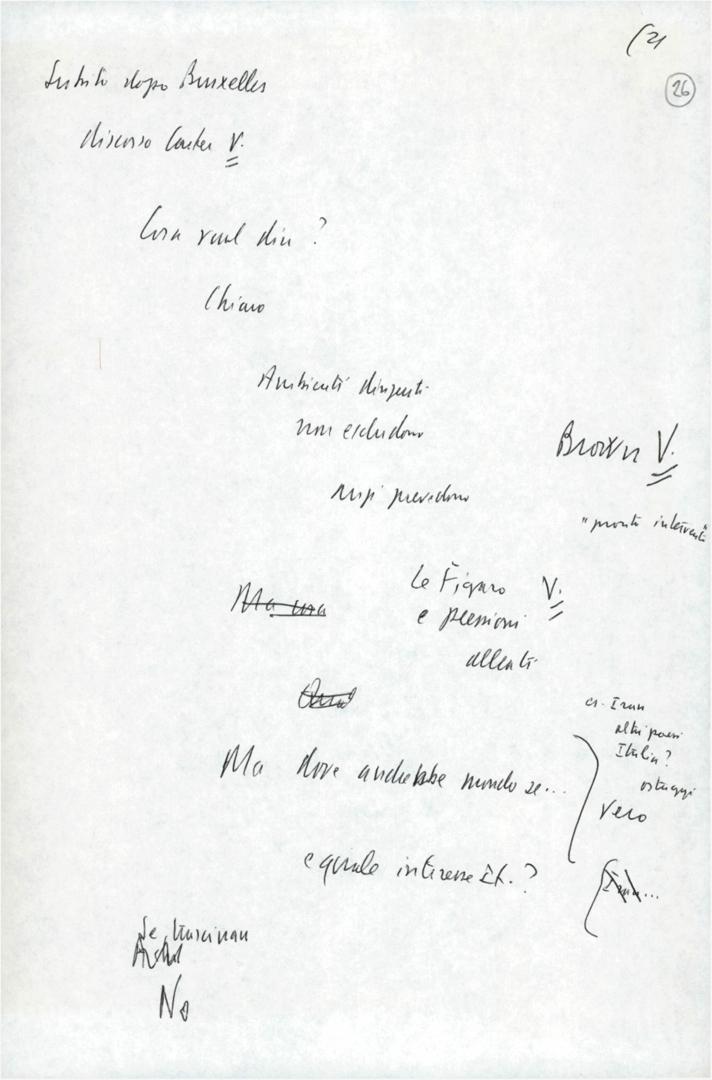 (21
26
Subito dopo Bruxelles
discorso Carter V.
Cosa vuol dire ?
Chiaro
Ambienti dirigenti
non escludono
anzi prevedono
Brown V.
"pronti interventi"
Le Figaro V.
e pressioni
alleati
Ma una
Ma dove andrebbe mondo se...
cr. Iran
altri paesi
Italia?
ostaggi
Vero
e quale interesse It. ?
Iran...
Se trascinan
No